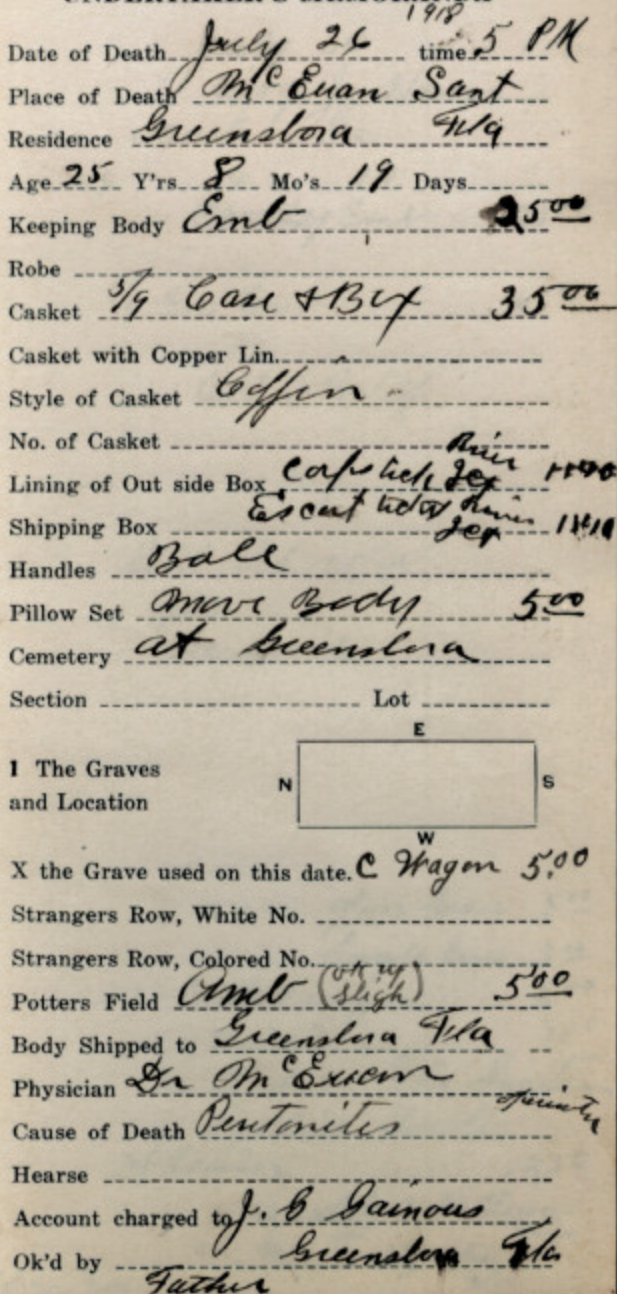 1918
Date of Death July 26 time 5 PM
Place of Death McEuan Sant
Residence Greensbora Fla
Age 25 Y'rs 8 Mo's 19 Days
Keeping Body Emb 25 00
Robe
Casket 5/9 Case & Box 35 00
Casket with Copper Lin.
Style of Casket Coffin
No. of Casket
River
Lining of Out side Box Corps tick Jct
Escort ticket River
Shipping Box Jct
Handles Ball
Pillow Set Move Body 5 00
Cemetery at Greensbora
Section Lot
E
1 The Graves
N S
and Location
W
X the Grave used on this date. C Wagon 5.00
Strangers Row, White No.
Strangers Row, Colored No.
Potters Field Amb 5 00
Body Shipped to Greensbora Fla
Physician Dr McEuen
Cause of Death Peritonites
Hearse
Account charged to J. C Gainous
Ok'd by Greensbora Fla
Father